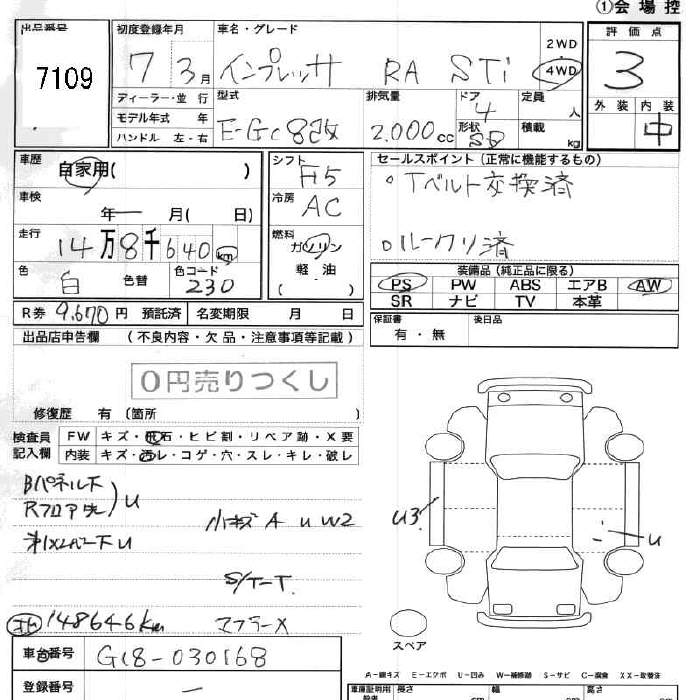 ①会場控
出品番号
7109
初度登録年月
7 3月
車名・グレード
インプレッサ RA STi
2WD
4WD
評価点
3
外装 内装
中
ディーラー・並行
モデル年式 年
ハンドル 左・右
型式
E-GC8改
排気量
2.000cc
ドア
4
形状
SD
定員
人
積載
kg
車歴
自家用( )
車検
年 月( 日)
走行
14万8千640km
色
白
色替
色コード
230
シフト
F5
冷房
AC
燃料
ガソリン
軽油
( )
セールスポイント(正常に機能するもの)
。Tベルト交換済
。ルークリ済
装備品(純正品に限る)
PS PW ABS エアB AW
SR ナビ TV 本革
R券 9,670円 預託済 名変期限 月 日
保証書
有・無
後日品
出品店申告欄 (不良内容・欠品・注意事項等記載)
0円売りつくし
修復歴 有 (箇所 )
検査員
記入欄
FW キズ・飛石・ヒビ割・リペア跡・X要
内装 キズ・汚レ・コゲ・穴・スレ・キレ・破レ
Bパネル下
Rフロア先
U
小キズ A U W2
U3
U
S/T-T
148646km
マフラーX
スペア
車台番号
GC8-030168
登録番号
—
A−線キズ E−エクボ U−凹み W−補修跡 S−サビ C−腐食 XX−取替済
車庫証明用
長さ
幅
高さ